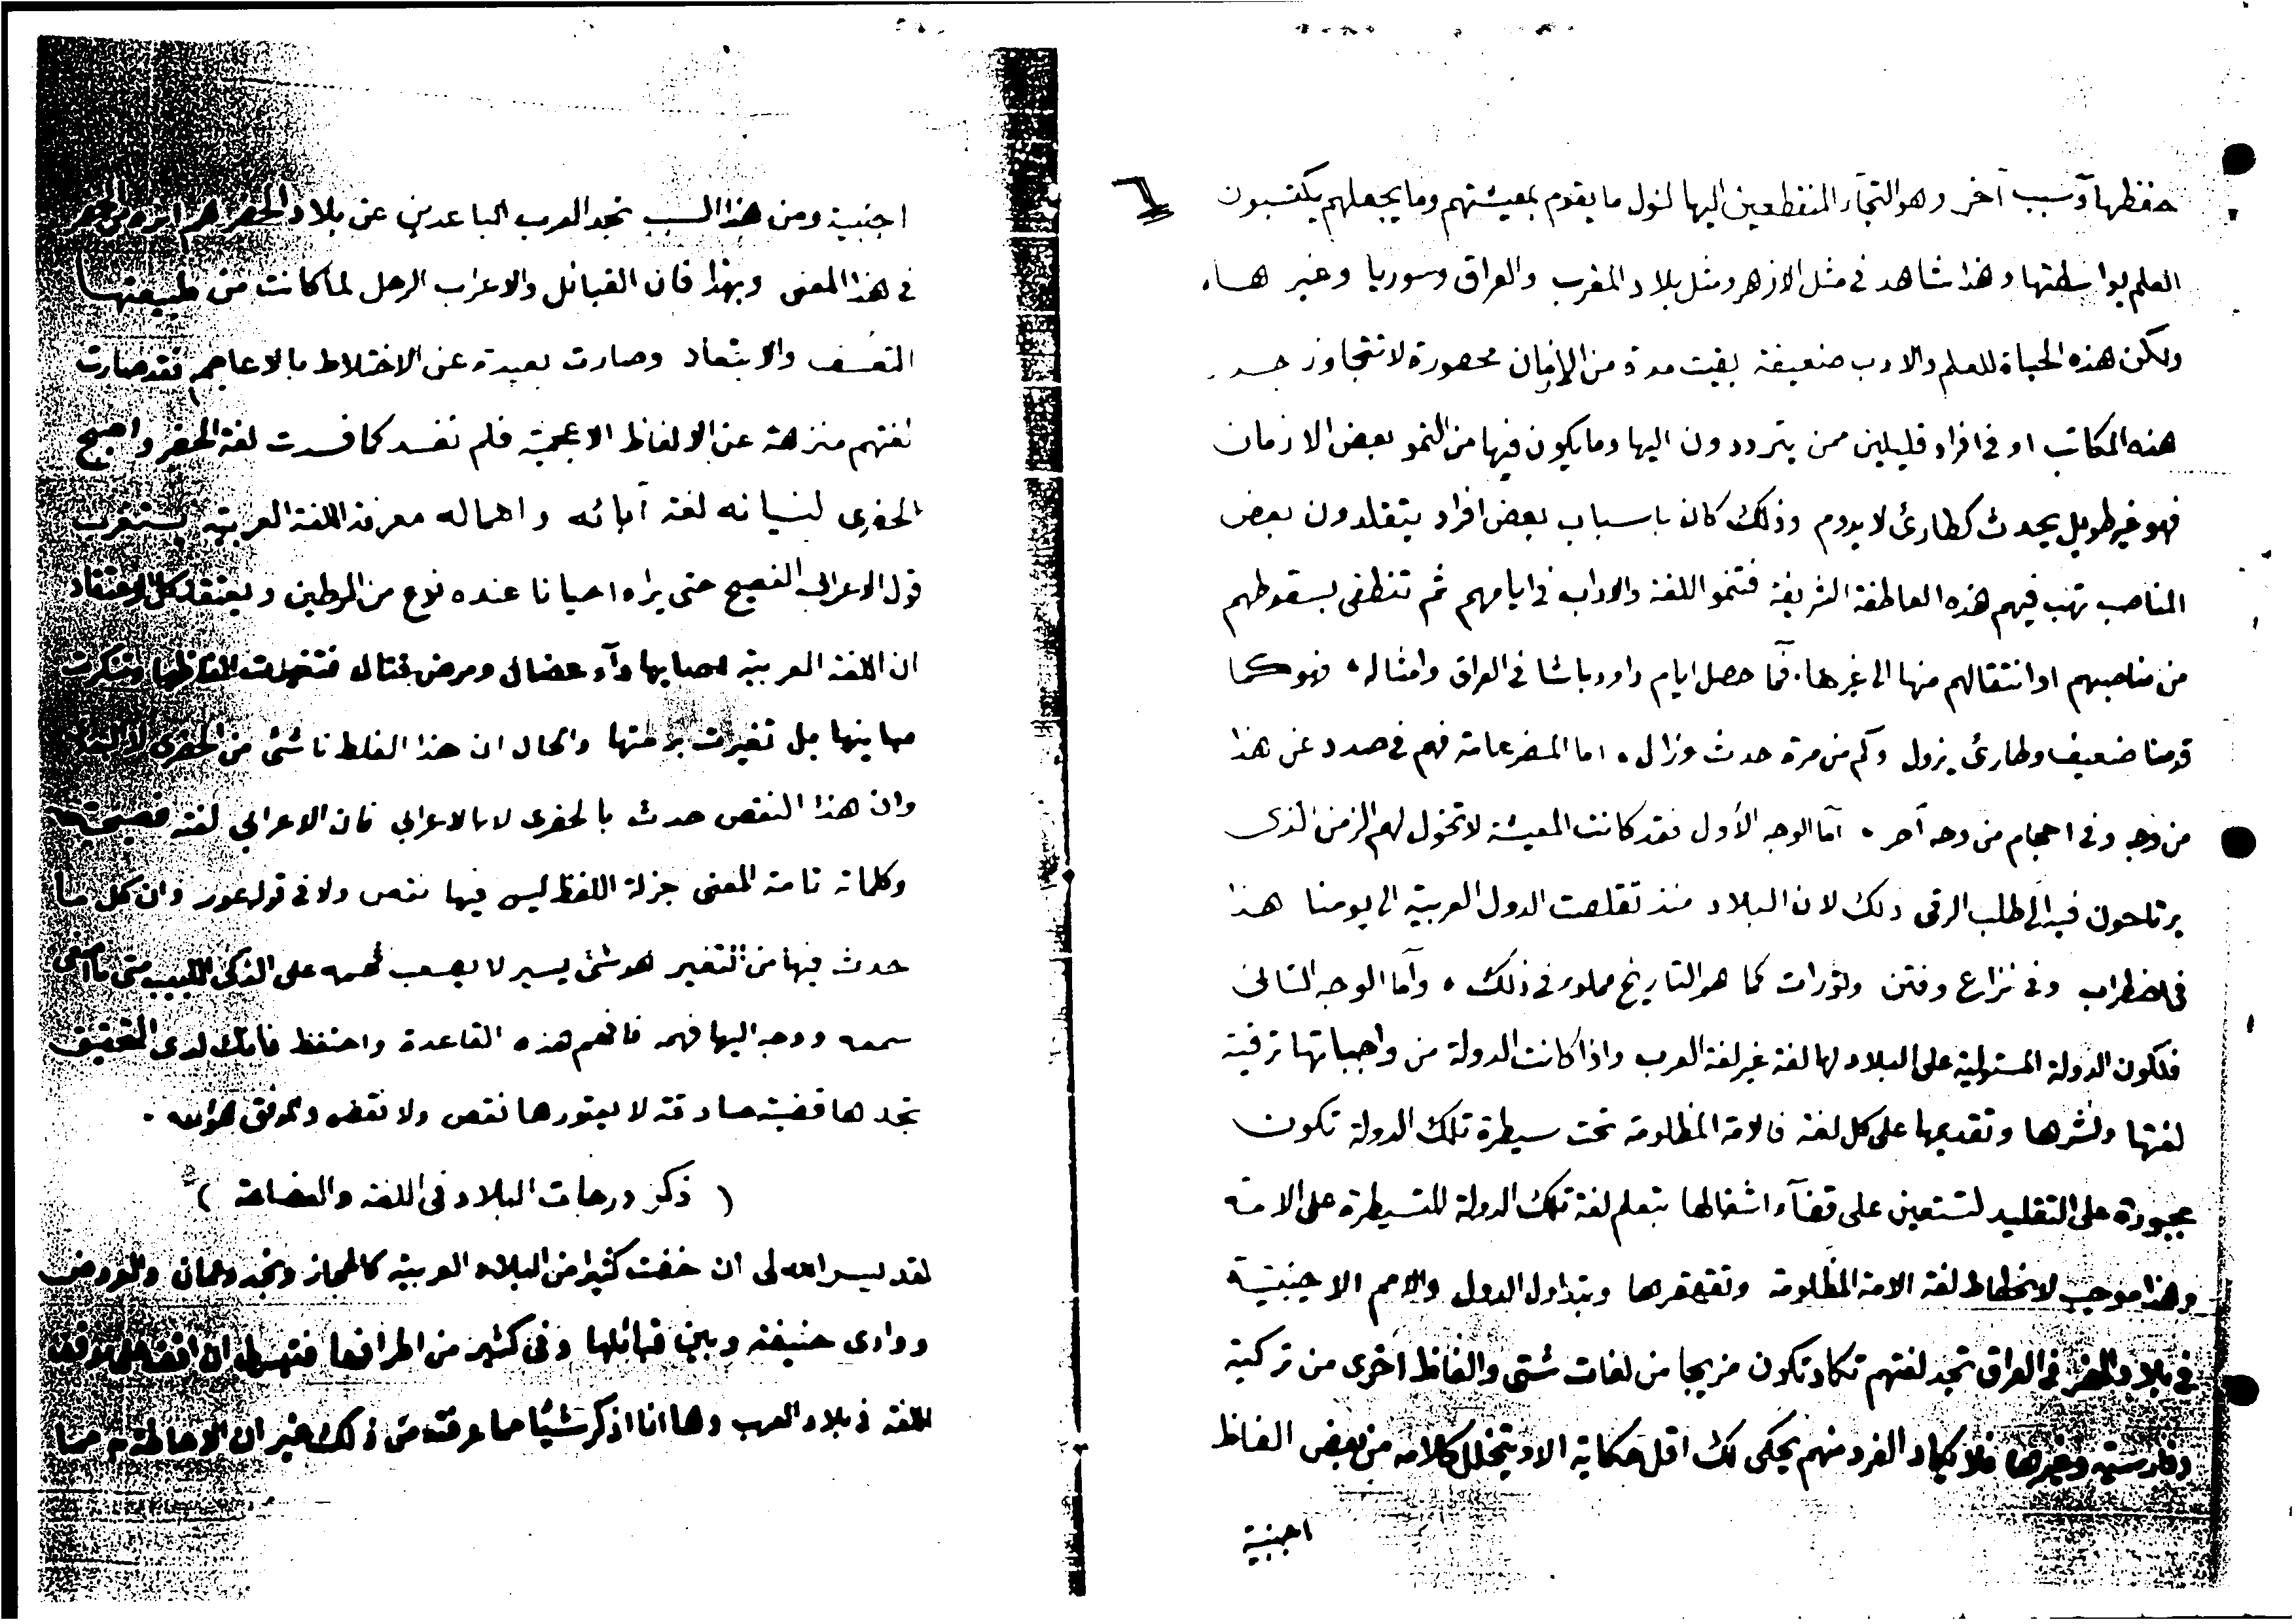 حفظها وسبب آخر وهو التجآء المنقطعين اليها لنول ما يقوم بمعيشتهم وما يجعلهم يكتسبون
العلم بواسطتها وهذا شاهد في مثل الازهر ومثل بلاد المغرب والعراق وسوريا وغير ها،
ولكن هذه الحياة للعلم والادب ضعيفة بقيت مدة من الازمان محصورة لا تتجاوز
هذه المكاتب او في افراد قليلين ممن يترددون اليها وما يكون فيها من النمو بعض الازمان
فهو غير طويل يحدث كطارئ لا يدوم وذلك كان باسباب بعض افراد يتقلدون بعض
المناصب تهب فيهم هذه العاطفة الشريفة فتنمو اللغة والاداب في ايامهم ثم تنطفى بسقوطهم
من مناصبهم او انتقالهم منها الى غيرها. فما حصل ايام داود باشا في العراق وامثاله فهو كما
قدمنا ضعيف وطارئ يزول وكم من مرة حدث وزال ، اما الحضر عامة فهم في صدد عن هذا
من وجه وفي احجام من وجه آخر ، أما الوجه الأول فقد كانت المعيشة لا تخول لهم الزمن الذى
يرتاحون فيه الى طلب الرقى ذلك لان البلاد منذ تقلصت الدول العربية الى يومنا هذا
في اضطراب وفي نزاع وفتن وثورات كما هو التاريخ مملوء في ذلك ، وأما الوجه الثانى
فلكون الدولة المستولية على البلاد لها لغة غير لغة العرب واذا كانت الدولة من واجباتها ترقية
لغتها ونشرها وتقديمها على كل لغة فالامة المظلومة تحت سيطرة تلك الدولة تكون
مجبورة على التقليد لتستعين على قضآء اشغالها بتعلم لغة تلك الدولة المسيطرة على الامة
وهذا موجب لانحطاط لغة الامة المظلومة وتقهقرها وبتداول الدول والامم الاجنبية
في بلاد الحضر في العراق تجد لغتهم تكاد تكون مزيجا من لغات شتى والفاظ اخرى من تركية
وفارسية وغيرها فلا يكاد الفرد منهم يحكى لك اقل حكاية الا ويتخلل كلامه من بعض الفاظ
اجنبية
اجنبية ومن هذا السبب تجد العرب المباعدين عن بلاد الحضر هم
في هذا المعنى وبهذا فان القبائل والاعراب الرحل لما كانت من طبيعتها
التعسف والابتعاد وصارت بعيدة عن الاختلاط بالاعاجم فقد صارت
لغتهم منزهة عن الالفاظ الاعجمية فلم تفسد كما فسدت لغة الحضر واصبح
الحضرى لنسيانه لغة آبائه واهماله معرفة اللغة العربية يستغرب
قول الاعرابى الفصيح حتى يراه احيانا عنده نوع من الرطين ويعتقد كل الاعتقاد
ان اللغة العربية اصابها دآء عضال ومرض قتال فتغيرت الفاظها وتنكرت
مباينها بل تغيرت برمتها والحال ان هذا الغلط ناشئ من الحضرى
وان هذا النقص حدث بالحضرى لا بالاعرابي فان الاعرابي لغته فصيحة
وكلماته تامة المعنى جزلة اللفظ ليس فيها نقص ولا في قوله عور وان كل ما
حدث فيها من التغير هو شئ يسير لا يصعب فهمه على الذكى اللبيب متى ما اصغى
سمعه ووجه اليها فهمه فافهم هذه القاعدة واحتفظ فانك لدى التحقيق
تجدها قضية صادقة لا يعتورها نقص ولا نقض والموفق هو الله .
( ذكر درجات البلاد في اللغة والفصاحة )
لقد يسر الله لى ان خضت كثيرا من البلاد العربية كالحجاز ونجد وعمان والعروض
ووادى حنيفة وبين قبائلها وفي كثير من اطرافها فتسهل لى ان اقف على موقف
اللغة في بلاد العرب وها انا اذكر شيئا مما عرفته من ذلك غير ان الاحاطة